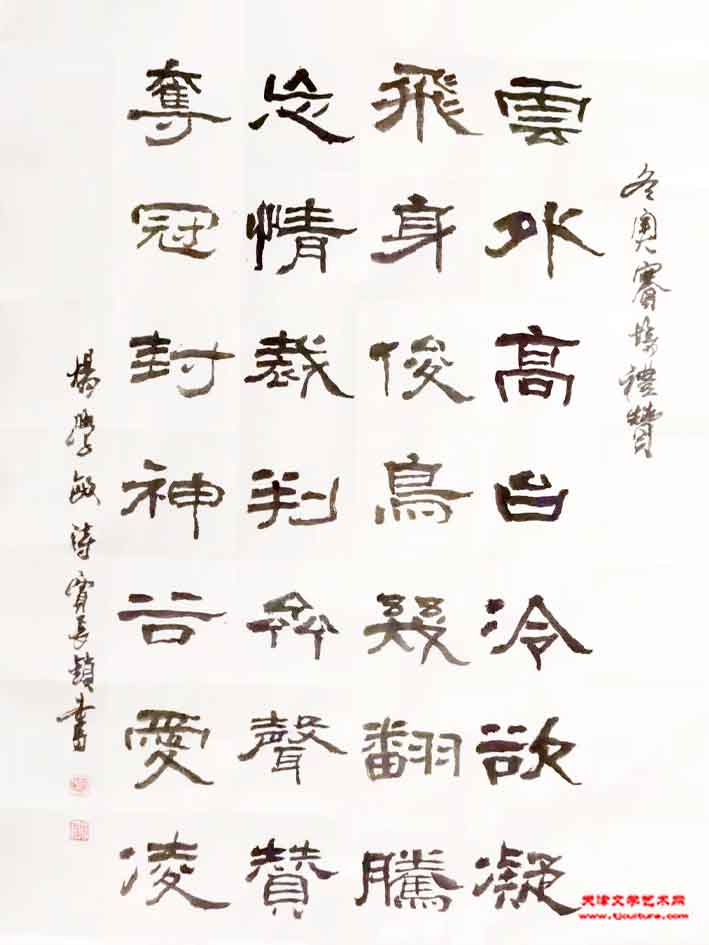 冬奧賽場禮贊
雲外高台冷欲凝
飛身俊鳥幾翻騰
忘情裁判齊聲贊
奪冠封神谷愛凌
楊學敏詩賈長鎖書
天津文学艺术网
www.tjculture.com